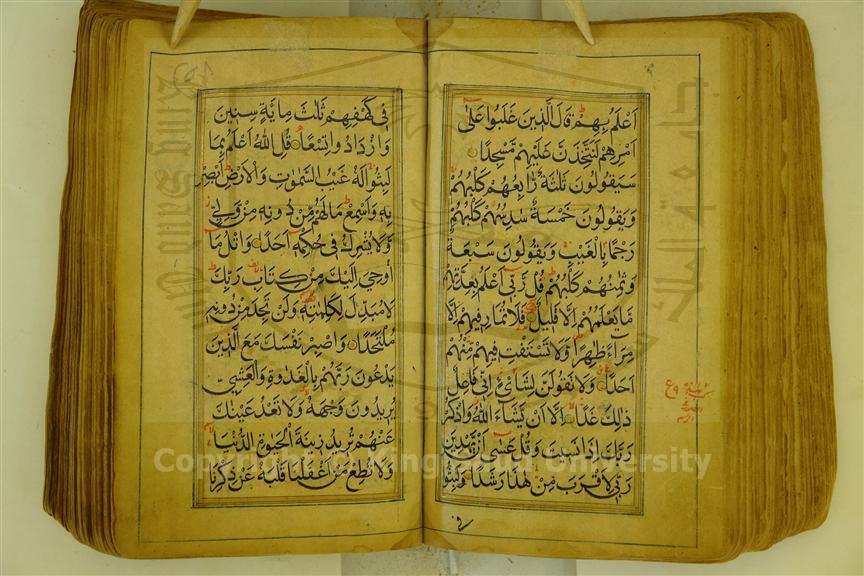 اَعْلَمُ بِهِمْ قَالَ الَّذِينَ غَلَبُوا عَلٰى
اَمْرِهِمْ لَنَتَّخِذَنَّ عَلَيْهِمْ مَسْجِدًا
سَيَقُولُونَ ثَلٰثَةٌ رَّابِعُهُمْ كَلْبُهُمْ
وَيَقُولُونَ خَمْسَةٌ سَادِسُهُمْ كَلْبُهُمْ
رَجْمًا بِالْغَيْبِ وَيَقُولُونَ سَبْعَةٌ
وَثَامِنُهُمْ كَلْبُهُمْ قُلْ رَّبِّي اَعْلَمُ بِعِدَّتِهِمْ
مَا يَعْلَمُهُمْ اِلَّا قَلِيلٌ فَلَا تُمَارِ فِيهِمْ اِلَّا
مِرَاءً ظَاهِرًا وَلَا تَسْتَفْتِ فِيهِمْ مِنْهُمْ
اَحَدًا وَلَا تَقُولَنَّ لِشَايْءٍ اِنِّي فَاعِلٌ
ذٰلِكَ غَدًا اِلَّا اَنْ يَشَاءَ اللّٰهُ وَاذْكُرْ
رَبَّكَ اِذَا نَسِيتَ وَقُلْ عَسٰى اَنْ يَهْدِيَنِ
رَبِّي لِاَقْرَبَ مِنْ هٰذَا رَشَدًا وَلَبِثُوا
فِي كَهْفِهِمْ ثَلٰثَ مِايَةٍ سِنِينَ
وَازْدَادُوا تِسْعًا قُلِ اللّٰهُ اَعْلَمُ بِمَا
لَبِثُوا لَهُ غَيْبُ السَّمٰوٰتِ وَالْاَرْضِ اَبْصِرْ
بِهِ وَاَسْمِعْ مَا لَهُمْ مِنْ دُونِهِ مِنْ وَلِيٍّ
وَلَا يُشْرِكُ فِي حُكْمِهِ اَحَدًا وَاتْلُ مَا
اُوحِيَ اِلَيْكَ مِنْ كِتَابِ رَبِّكَ
لَا مُبَدِّلَ لِكَلِمٰتِهِ وَلَنْ تَجِدَ مِنْ دُونِهِ
مُلْتَحَدًا وَاصْبِرْ نَفْسَكَ مَعَ الَّذِينَ
يَدْعُونَ رَبَّهُمْ بِالْغَدٰوةِ وَالْعَشِيِّ
يُرِيدُونَ وَجْهَهُ وَلَا تَعْدُ عَيْنَاكَ
عَنْهُمْ تُرِيدُ زِينَةَ الْحَيٰوةِ الدُّنْيَا
وَلَا تُطِعْ مَنْ اَغْفَلْنَا قَلْبَهُ عَنْ ذِكْرِنَا
Copyright © King Saud University